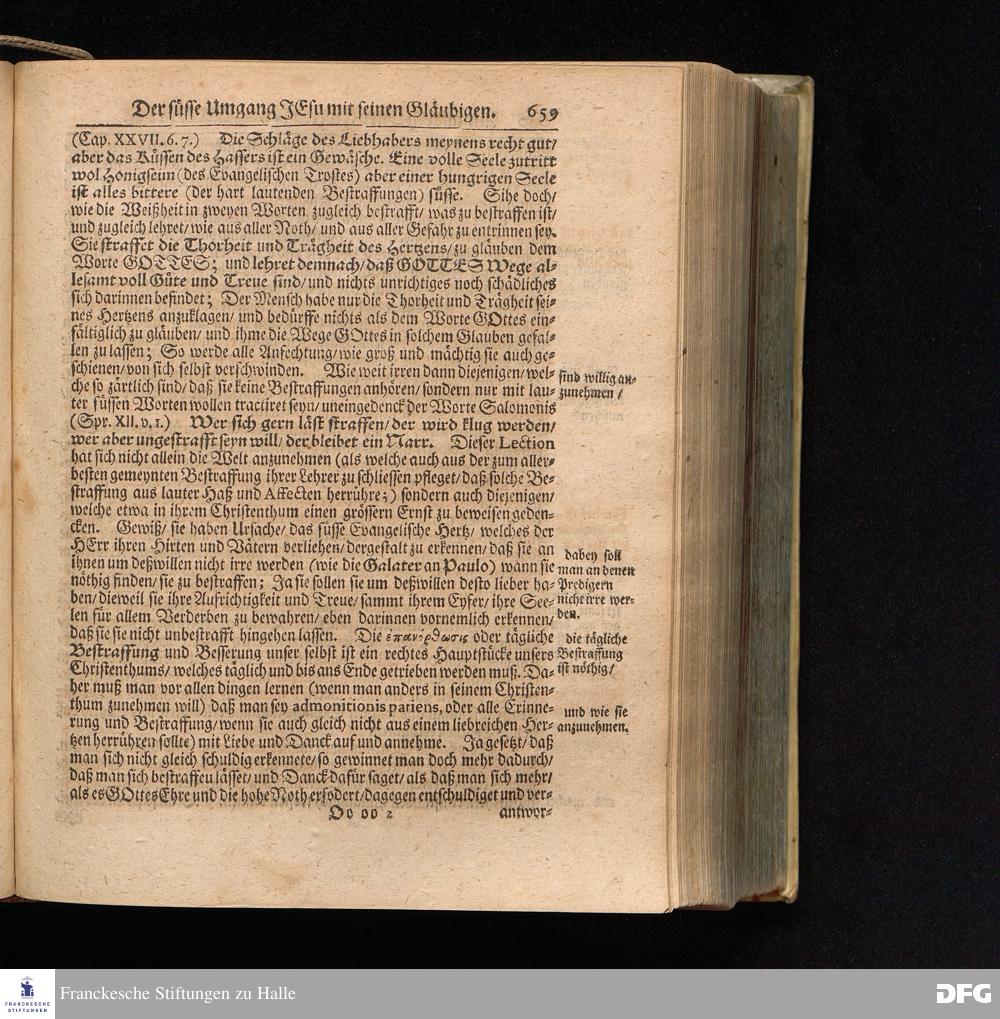 Der süsse Umgang JEsu mit seinen Gläubigen. 659
(Cap. XXVII. 6. 7.) Die Schläge des Liebhabers meynens recht gut/
aber das Küssen des Hassers ist ein Gewäsche. Eine volle Seele zutritt
wol Honigseim (des Evangelischen Trostes) aber einer hungrigen Seele
ist alles bittere (der hart lautenden Bestraffungen) süsse. Sihe doch/
wie die Weißheit in zweyen Worten zugleich bestrafft/ was zu bestraffen ist/
und zugleich lehret/ wie aus aller Noth/ und aus aller Gefahr zu entrinnen sey.
Sie straffet die Thorheit und Trägheit des Hertzens/ zu gläuben dem
Worte GOTTES; und lehret demnach/ daß GOTTES Wege al-
lesamt voll Güte und Treue sind/ und nichts unrichtiges noch schädliches
sich darinnen befindet; Der Mensch habe nur die Thorheit und Trägheit sei-
nes Hertzens anzuklagen/ und bedürffe nichts als dem Worte GOttes ein-
fältiglich zu gläuben/ und ihme die Wege GOttes in solchem Glauben gefal-
len zu lassen; So werde alle Anfechtung/ wie groß und mächtig sie auch ge-
schienen/ von sich selbst verschwinden. Wie weit irren dann diejenigen/ wel-
che so zärtlich sind/ daß sie keine Bestraffungen anhören/ sondern nur mit lau-
ter süssen Worten wollen tractiret seyn/ uneingedenck der Worte Salomonis
(Spr. XII. v. 1.) Wer sich gern läst straffen/ der wird klug werden/
wer aber ungestrafft seyn will/ der bleibet ein Narr. Dieser Lection
hat sich nicht allein die Welt anzunehmen (als welche auch aus der zum aller-
besten gemeynten Bestraffung ihrer Lehrer zu schliessen pfleget/ daß solche Be-
straffung aus lauter Haß und Affecten herrühre;) sondern auch diejenigen/
welche etwa in ihrem Christenthum einen grössern Ernst zu beweisen geden-
cken. Gewiß/ sie haben Ursache/ das süsse Evangelische Hertz/ welches der
HErr ihren Hirten und Vätern verliehen/ dergestalt zu erkennen/ daß sie an
ihnen um deßwillen nicht irre werden (wie die Galater an Paulo) wann sie
nöthig finden/ sie zu bestraffen; Ja sie sollen sie um deßwillen desto lieber ha-
ben/ dieweil sie ihre Aufrichtigkeit und Treue/ sammt ihrem Eyfer/ ihre See-
len für allem Verderben zu bewahren/ eben darinnen vornemlich erkennen/
daß sie sie nicht unbestrafft hingehen lassen. Die ἐπανόρθωσις oder tägliche
Bestraffung und Besserung unser selbst ist ein rechtes Hauptstücke unsers
Christenthums/ welches täglich und bis ans Ende getrieben werden muß. Da-
her muß man vor allen dingen lernen (wenn man anders in seinem Christen-
thum zunehmen will) daß man sey admonitionis patiens, oder alle Erinne-
rung und Bestraffung/ wenn sie auch gleich nicht aus einem liebreichen Her-
tzen herrühren sollte) mit Liebe und Danck auf und annehme. Ja gesetzt/ daß
man sich nicht gleich schuldig erkennete/ so gewinnet man doch mehr dadurch/
daß man sich bestraffen lässet/ und Danck dafür saget/ als daß man sich mehr/
als es GOttes Ehre und die hohe Noth erfodert/ dagegen entschuldiget und ver-
Oo oo 2 antwor-
sind willig an-
zunehmen/
dabey soll
man an denen
Predigern
nicht irre wer-
den.
die tägliche
Bestraffung
ist nöthig/
und wie sie
anzunehmen.
FRANCKESCHE
STIFTUNGEN
Franckesche Stiftungen zu Halle
DFG